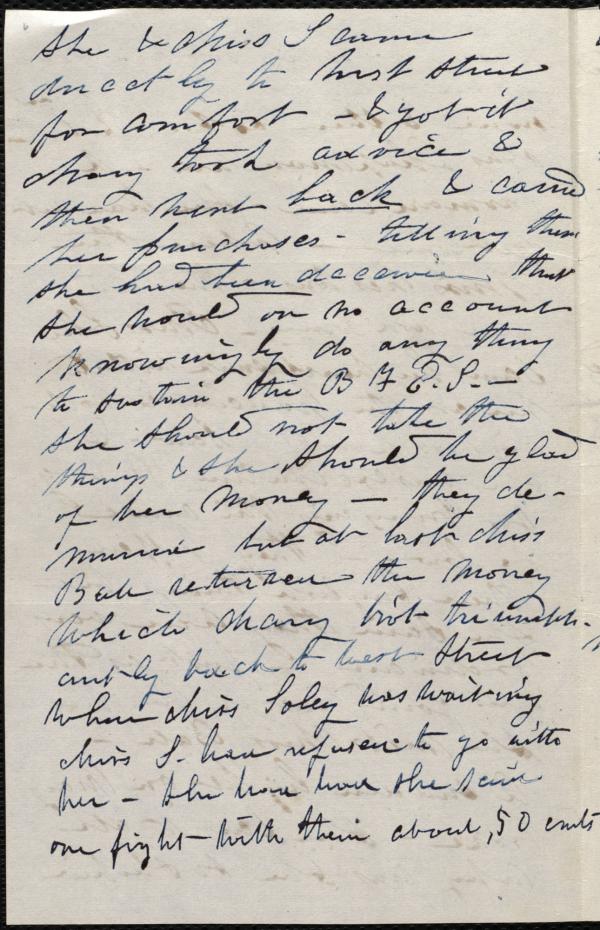 she & Miss S came
directly to West Street
for comfort - & got it
Mary took advice &
then went back & carried
her purchases - telling them
she had been deceived that
she would on no account
knowingly do any thing
to sustain the B F E. S. -
she should not take the
things & she should be glad
of her money - they de-
murred but at last Miss
returned the money
which Mary bro't triumph-
antly back to West Street
where Miss Soley was waiting
Miss S. had refused to go with
her - she had had she said
one fight with them about, 50 cents